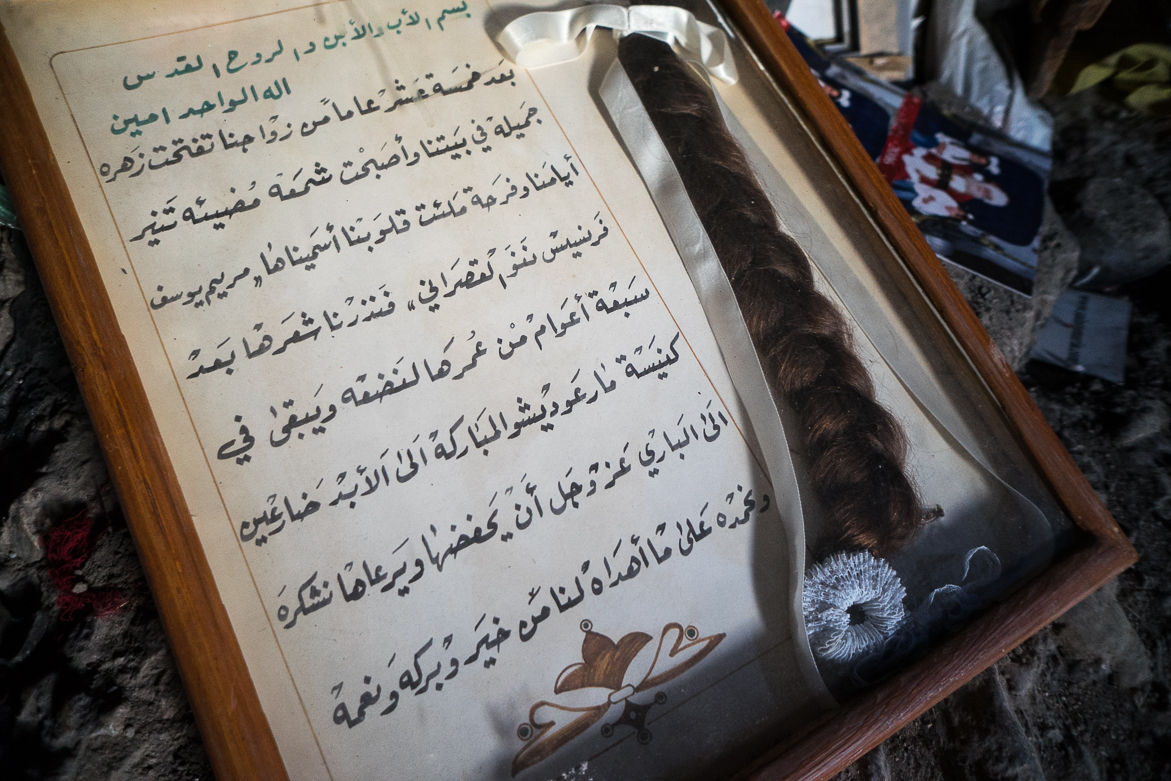 بسم الأب والأبن والروح القدس
اله الواحد امين
بعد خمسة عشر عاماً من زواجنا تفتحت زهره
جميله في بيتنا وأصبحت شمعة مضيئه تنير
أيامنا وفرحة ملئت قلوبنا أسميناها "مريم يوسف
فرنسيس ننو القصراني" فنذرنا شعرها بعد
سبعة أعوام من عمرها لنضعه ويبقى في
كنيسة مار عوديشو المباركة الى الأبد ضارعين
الى الباري عز وجل أن يحفضها ويرعاها نشكره
ونحمده على ما أهداه لنا من خير وبركه ونعمة